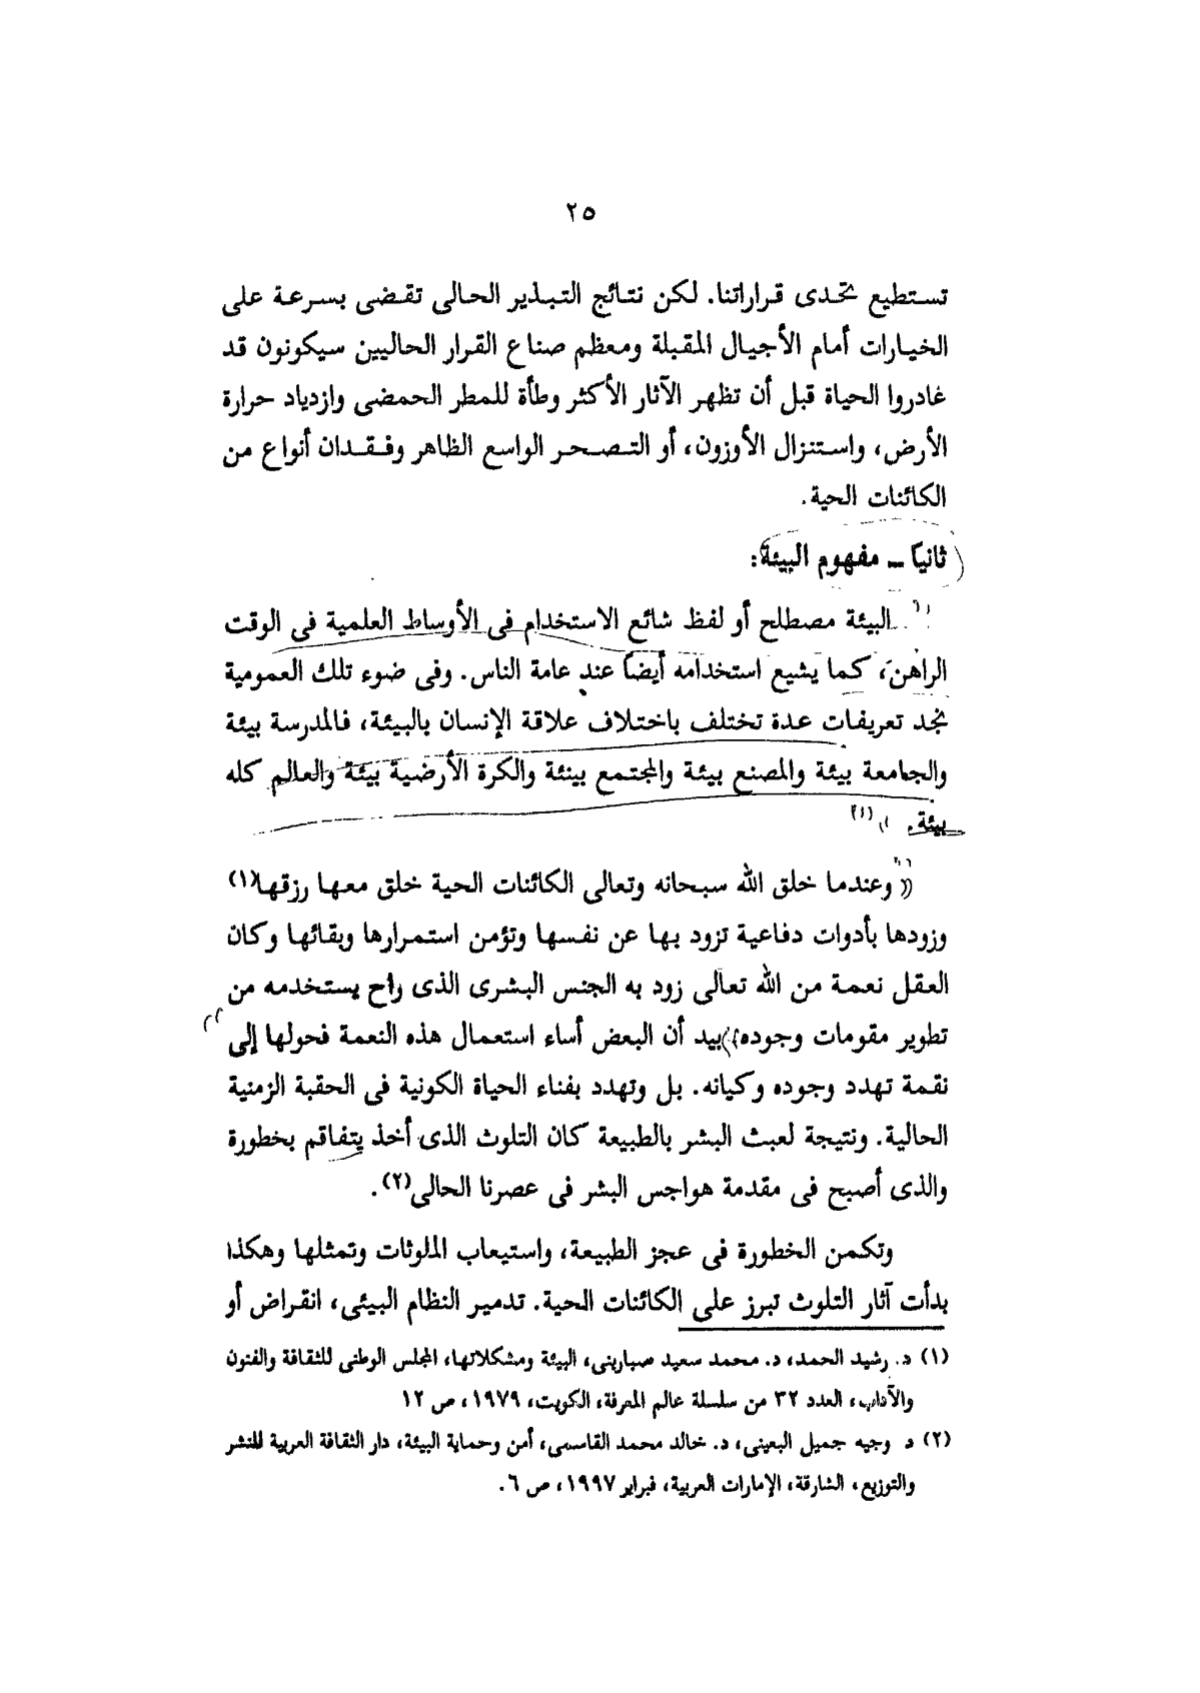 ٢٥
تستطيع تحدى قراراتنا. لكن نتائج التبذير الحالى تقضى بسرعة على
الخيارات أمام الأجيال المقبلة ومعظم صناع القرار الحاليين سيكونون قد
غادروا الحياة قبل أن تظهر الآثار الأكثر وطأة للمطر الحمضى وازدياد حرارة
الأرض، واستنزال الأوزون، أو التصحر الواسع الظاهر وفقدان أنواع من
الكائنات الحية.
ثانيًا ــ مفهوم البيئة:
البيئة مصطلح أو لفظ شائع الاستخدام فى الأوساط العلمية فى الوقت
الراهن، كما يشيع استخدامه أيضًا عند عامة الناس. وفى ضوء تلك العمومية
نجد تعريفات عدة تختلف باختلاف علاقة الإنسان بالبيئة، فالمدرسة بيئة
والجامعة بيئة والمصنع بيئة والمجتمع بيئة والكرة الأرضية بيئة والعالم كله
بيئة. (١)
وعندما خلق الله سبحانه وتعالى الكائنات الحية خلق معها رزقها(١)
وزودها بأدوات دفاعية تزود بها عن نفسها وتؤمن استمرارها وبقائها وكان
العقل نعمة من الله تعالى زود به الجنس البشرى الذى راح يستخدمه من
تطوير مقومات وجوده، بيد أن البعض أساء استعمال هذه النعمة فحولها إلى
نقمة تهدد وجوده وكيانه. بل وتهدد بفناء الحياة الكونية فى الحقبة الزمنية
الحالية. ونتيجة لعبث البشر بالطبيعة كان التلوث الذى أخذ يتفاقم بخطورة
والذى أصبح فى مقدمة هواجس البشر فى عصرنا الحالى(٢).
وتكمن الخطورة فى عجز الطبيعة، واستيعاب الملوثات وتمثلها وهكذا
بدأت آثار التلوث تبرز على الكائنات الحية. تدمير النظام البيئى، انقراض أو
(١) د. رشيد الحمد، د. محمد سعيد صبارينى، البيئة ومشكلاتها، المجلس الوطنى للثقافة والفنون
والآداب، العدد ٣٢ من سلسلة عالم المعرفة، الكويت، ١٩٧٩، ص ١٢
(٢) د وجيه جميل البعينى، د. خالد محمد القاسمى، أمن وحماية البيئة، دار الثقافة العربية للنشر
والتوزيع، الشارقة، الإمارات العربية، فبراير ١٩٩٧، ص ٦.